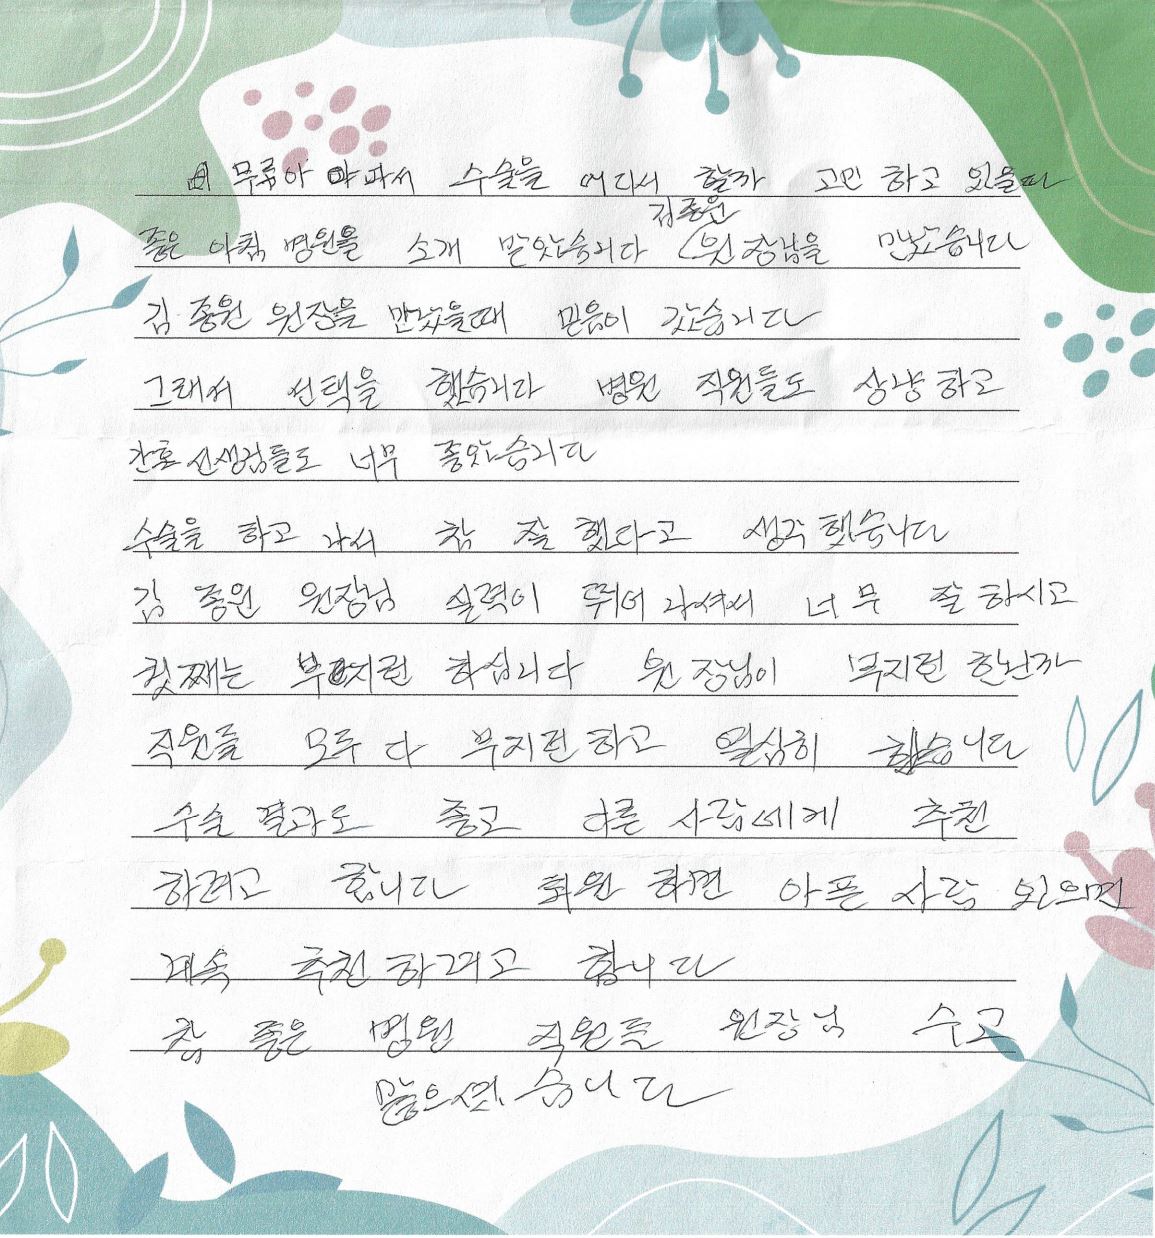 무릎이 아파서 수술을 어디서 할까 고민 하고 있을때
김종원
좋은 아침 병원을 소개 받았습니다 (원장님을 만났습니다
김종원 원장을 만났을때 믿음이 갔습니다
그래서 선택을 했습니다 병원 직원들도 상냥하고
간호선생님들도 너무 좋았습니다
수술을 하고 나서 참 잘 했다고 생각했습니다
김종원 원장님 실력이 뛰어나셔서 너무 잘하시고
첫째는 부지런 하십니다 원장님이 부지런 한난까
직원들 모두 다 부지런하고 열심히 했습니다
수술 결과도 좋고 다른 사람에게 추천
하려고 합니다 퇴원 하면 아픈 사람 있으면
계속 추천하려고 합니다
참 좋은 병원 직원들 원장님 수고
많으셨습니다